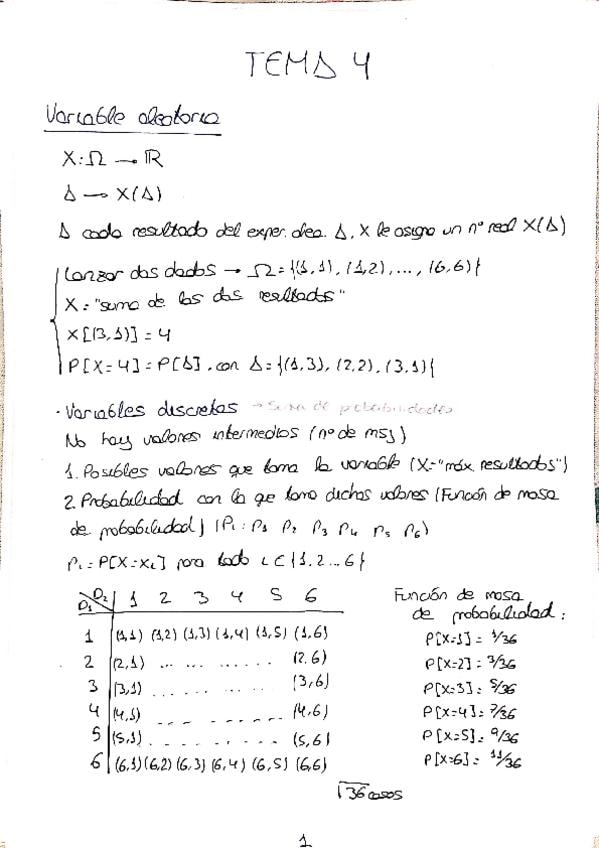 TEMA 4
Variable aleatoria
X: Ω → ℝ
A → X(A)
A cada resultado del exper. alea. A, X le asigna un nº real X(A)
Lanzar dos dados → Ω = {(1,1), (1,2), ..., (6,6)}
X = "suma de los dos resultados"
X[(3,1)] = 4
P[X=4] = P[A], con A = {(1,3), (2,2), (3,1)}
· Variables discretas → Suma de probabilidades
No hay valores intermedios (nº de msj)
1. Posibles valores que toma la variable (X = "máx. resultados")
2. Probabilidad con la que toma dichos valores (Función de masa
de probabilidad) (Pi: P1 P2 P3 P4 P5 P6)
Pi = P[X=xi] para todo i ∈ {1, 2 ... 6}
D1 D2 1 2 3 4 5 6
1 (1,1) (1,2) (1,3) (1,4) (1,5) (1,6)
2 (2,1) ... ... ... ... (2,6)
3 (3,1) ... ... ... ... (3,6)
4 (4,1) ... ... ... ... (4,6)
5 (5,1) ... ... ... ... (5,6)
6 (6,1) (6,2) (6,3) (6,4) (6,5) (6,6)
36 casos
Función de masa
de probabilidad:
P[X=1] = 1/36
P[X=2] = 3/36
P[X=3] = 5/36
P[X=4] = 7/36
P[X=5] = 9/36
P[X=6] = 11/36
1